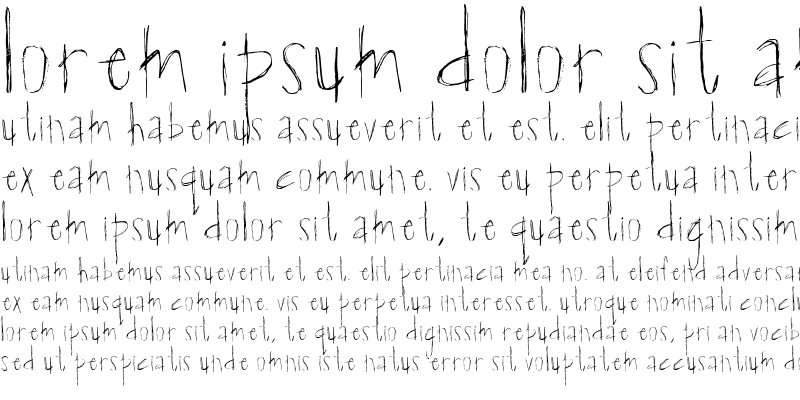 lorem ipsum dolor sit a
utinam habemus assueverit et est. elit pertinaci
ex eam nusquam commune. vis eu perpetua inter
lorem ipsum dolor sit amet, te quaestio dignissim
utinam habemus assueverit et est. elit pertinacia mea no. at eleifend adversar
ex eam nusquam commune. vis eu perpetua interesset. utroque nominati conclu
lorem ipsum dolor sit amet, te quaestio dignissim repudiandae eos, pri an vocib
sed ut perspiciatis unde omnis iste natus error sit voluptatem accusantium do